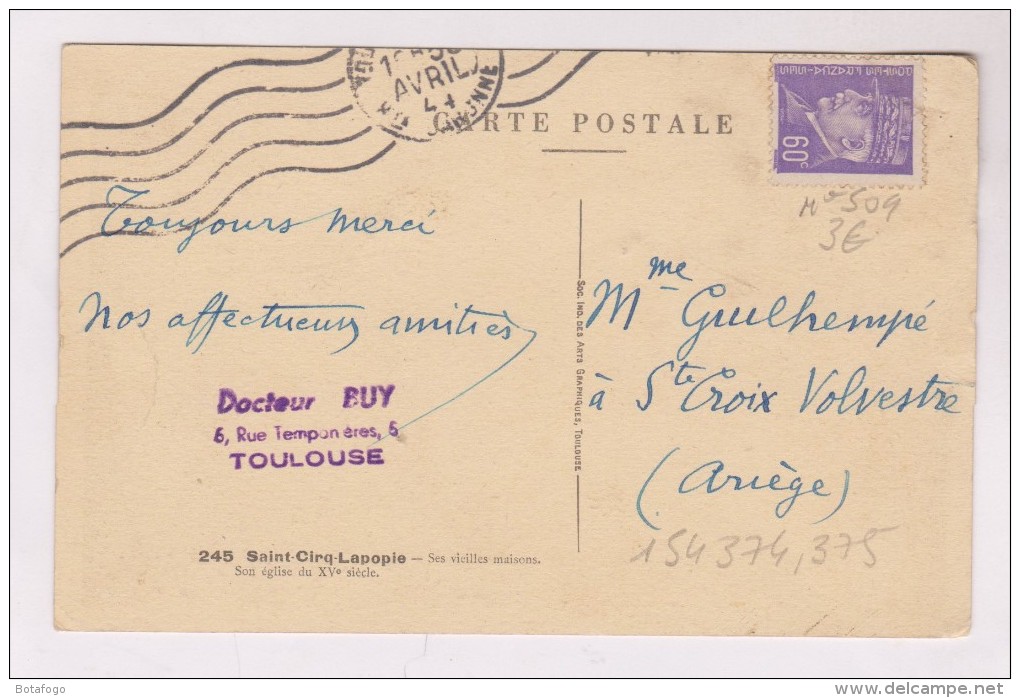 AVRIL
CARTE POSTALE
60c
Toujours merci
Nos affectueuses amitiés
Docteur BUY
6, Rue Temponières, 6
TOULOUSE
245 Saint-Cirq-Lapopie — Ses vieilles maisons.
Son église du XVe siècle.
SOC. IND. DES ARTS GRAPHIQUES, TOULOUSE
Mme Guilhempé
à Ste Croix Volvestre
(Ariège)
No 509
3€
154374,375
Botafogo
www.delcampe.net